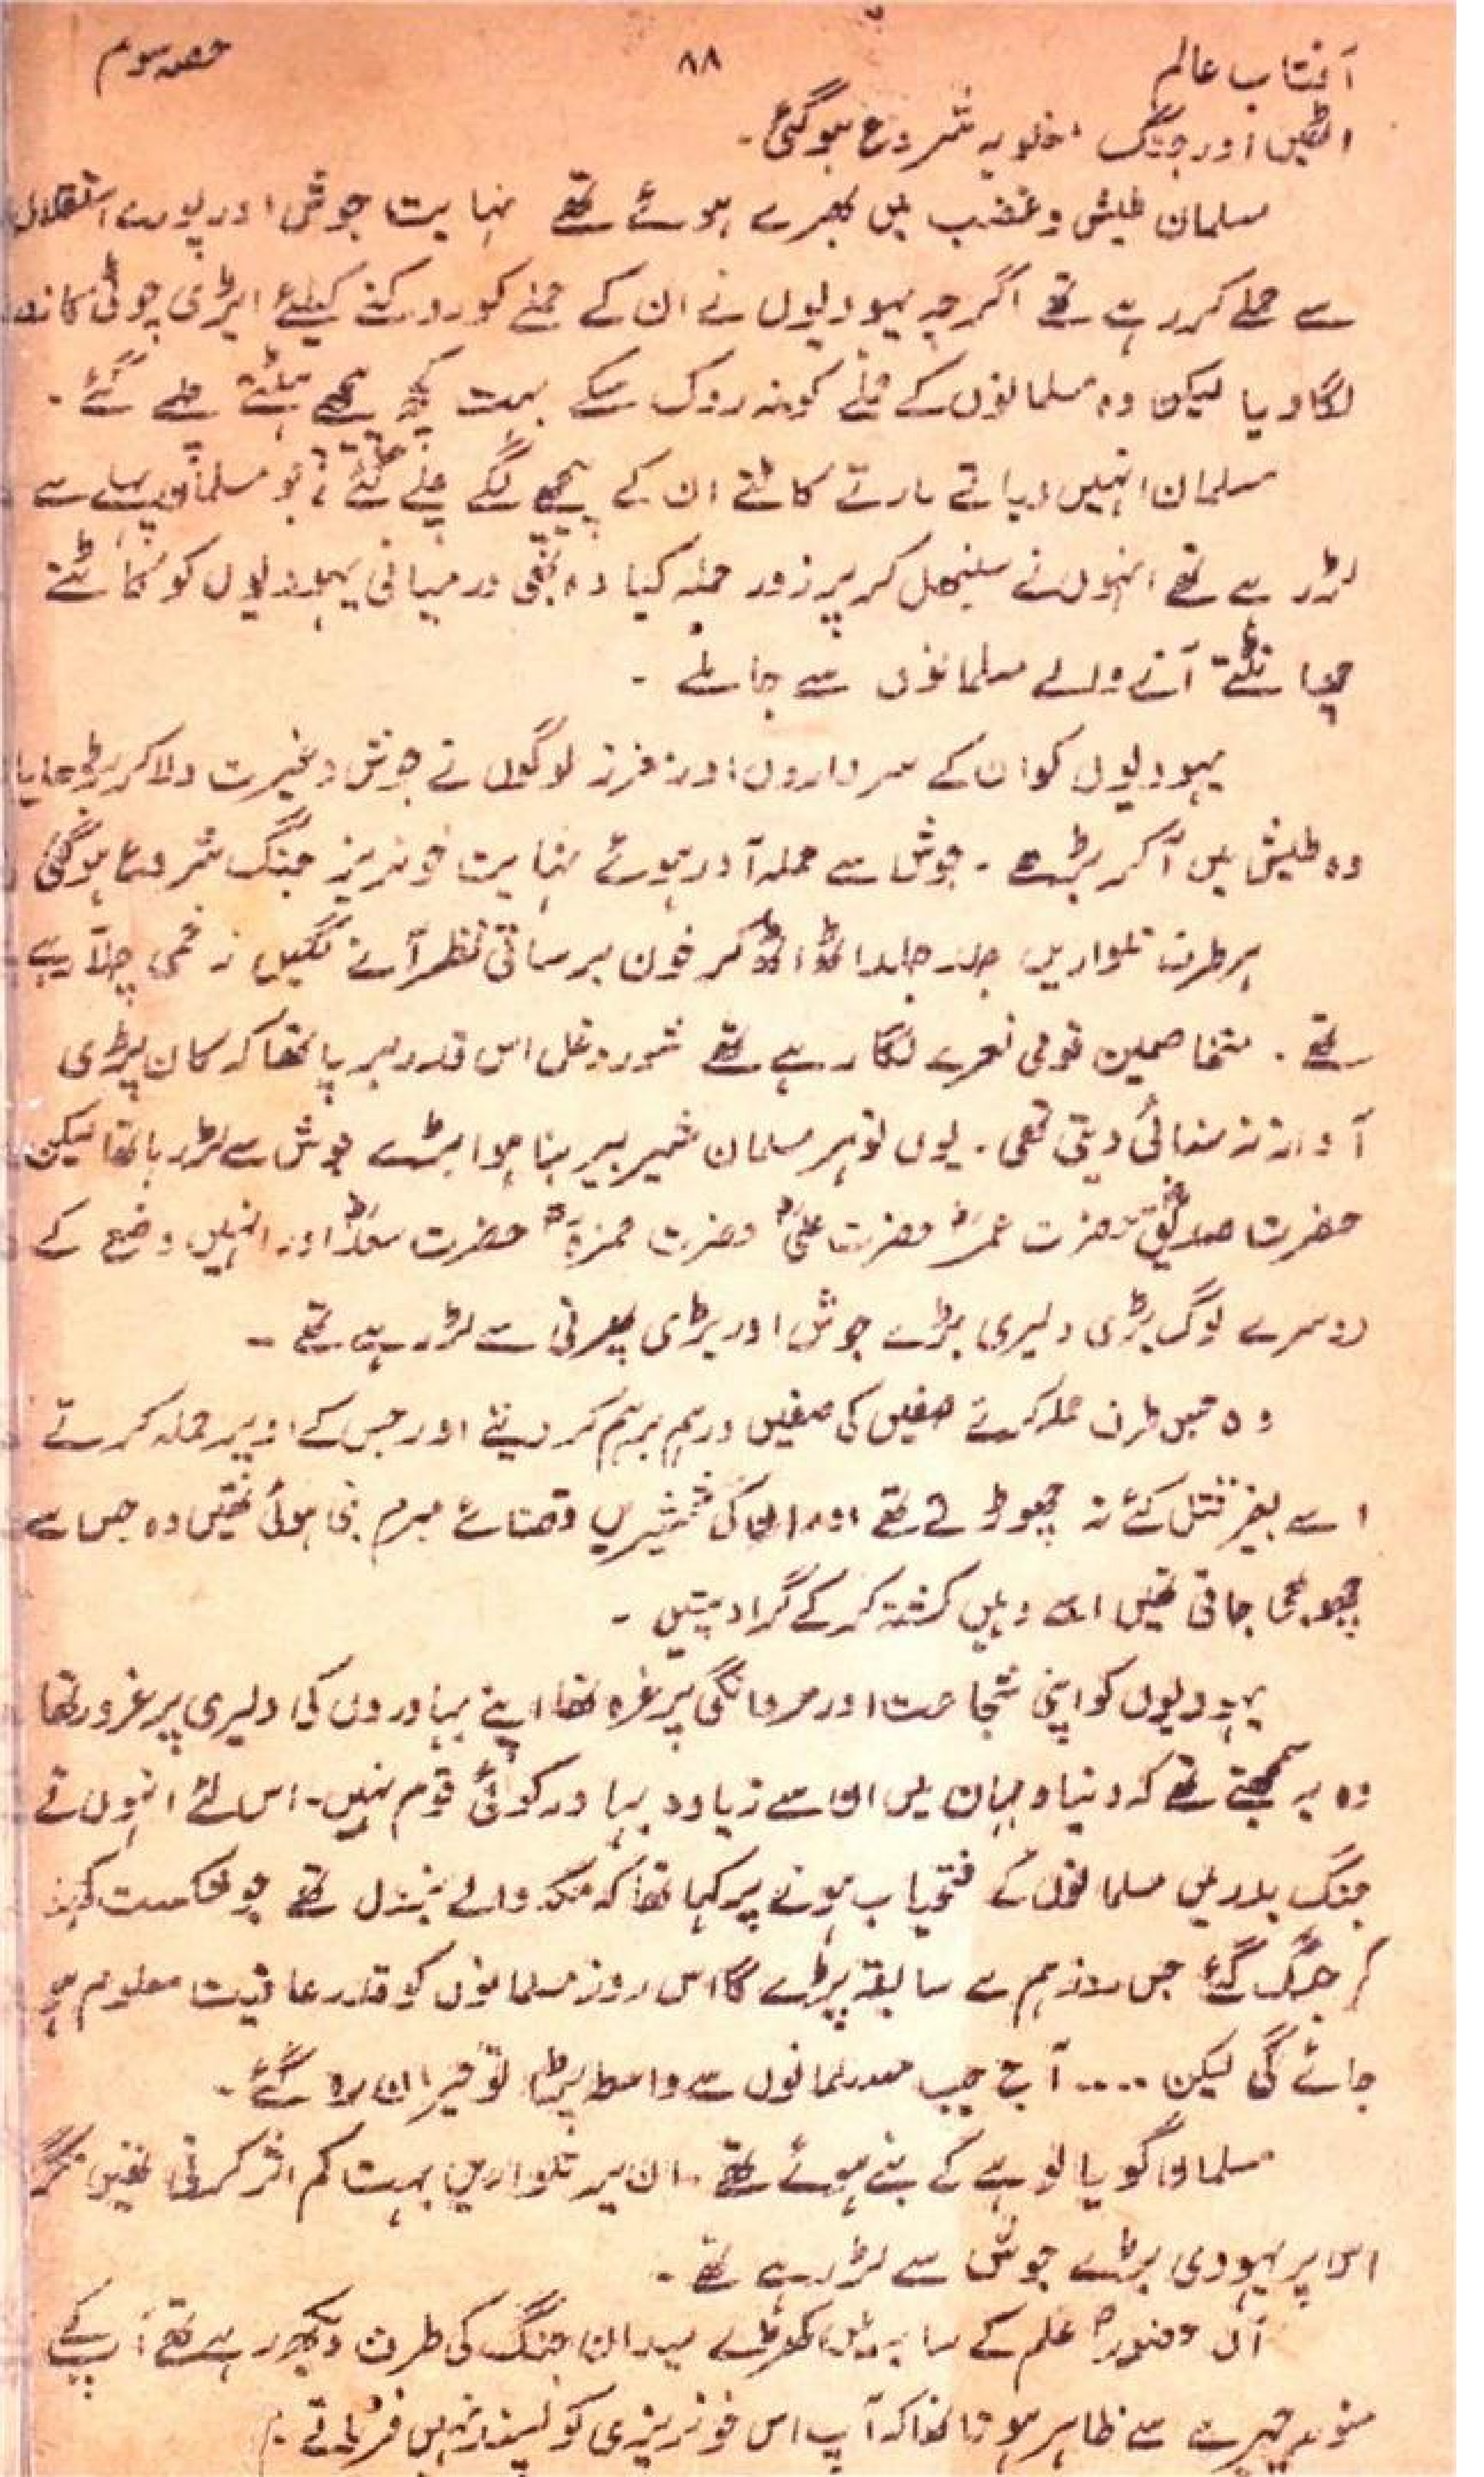 آفتاب عالم ۸۸ حصہ سوم
اٹھیں اور جنگ مغلوبہ شروع ہوگئی۔
مسلمان طیش و غضب میں بھرے ہوئے تھے نہایت جوش اور پورے استقلال
سے حملے کر رہے تھے اگرچہ یہودیوں نے ان کے حملے کو روکنے کیلئے ایڑی چوٹی کا زور
لگا دیا لیکن وہ مسلمانوں کے حملے کو نہ روک سکے بہت کچھ پیچھے ہٹتے چلے گئے۔
مسلمان انہیں دباتے مارتے کاٹتے ان کے پیچھے لگے چلے گئے جو مسلمان پہلے سے
لڑ رہے تھے انہوں نے سنبھل کر پر زور حملہ کیا وہ بھی درمیانی یہودیوں کو کاٹتے
چھانٹتے آنے والے مسلمانوں سے جا ملے۔
یہودیوں کو ان کے سرداروں اور معزز لوگوں نے جوش و غیرت دلا کر بڑھایا
وہ طیش میں آ کر بڑھے۔ جوش سے حملہ آور ہوئے نہایت خونریز جنگ شروع ہوگئی
ہر طرف تلواریں جلد جلد اٹھ اٹھ کر خون برساتی نظر آنے لگیں زخمی چلا رہے
تھے۔ متخاصمین قومی نعرے لگا رہے تھے شور و غل اس قدر برپا تھا کہ کان پڑی
آواز نہ سنائی دیتی تھی۔ یوں تو ہر مسلمان شیر ببر بنا ہوا بڑے جوش سے لڑ رہا تھا لیکن
حضرت صدیقؓ حضرت عمرؓ حضرت علیؓ حضرت حمزہؓ حضرت سعدؓ اور انہیں وضع کے
دوسرے لوگ بڑی دلیری بڑے جوش اور بڑی پھرتی سے لڑ رہے تھے۔
وہ جس طرف حملہ کرتے صفیں کی صفیں درہم برہم کر دیتے اور جس کے اوپر حملہ کرتے
اسے بغیر قتل کئے نہ چھوڑتے تھے اور ان کی شمشیریں قضائے مبرم بنی ہوئی تھیں وہ جس سے
چھو بھی جاتی تھیں اسے وہیں کشتہ کر کے گرا دیتیں۔
یہودیوں کو اپنی شجاعت اور مردانگی پر غرہ تھا اپنے بہادروں کی دلیری پر غرور تھا
وہ یہ سمجھتے تھے کہ دنیا و جہان میں ان سے زیادہ بہادر کوئی قوم نہیں۔ اس لئے انہوں نے
جنگ بدر میں مسلمانوں کے فتحیاب ہونے پر کہا تھا کہ مکہ والے بزدل تھے جو شکست
کر بھاگ گئے جس روز ہم سے سابقہ پڑے گا اس روز مسلمانوں کو قدر عافیت معلوم ہو
جائے گی لیکن .... آج جب مسلمانوں سے واسطہ پڑا تو حیران رہ گئے۔
مسلمان گویا لوہے کے بنے ہوئے تھے۔ ان پر تلواریں بہت کم اثر کرتی تھیں مگر
اس پر یہودی بڑے جوش سے لڑ رہے تھے۔
آں حضورؐ علم کے سایہ میں کھڑے میدان جنگ کی طرف دیکھ رہے تھے آپ کے
چہرے سے ظاہر ہوتا تھا کہ آپ اس خونریزی کو پسند نہیں فرماتے۔